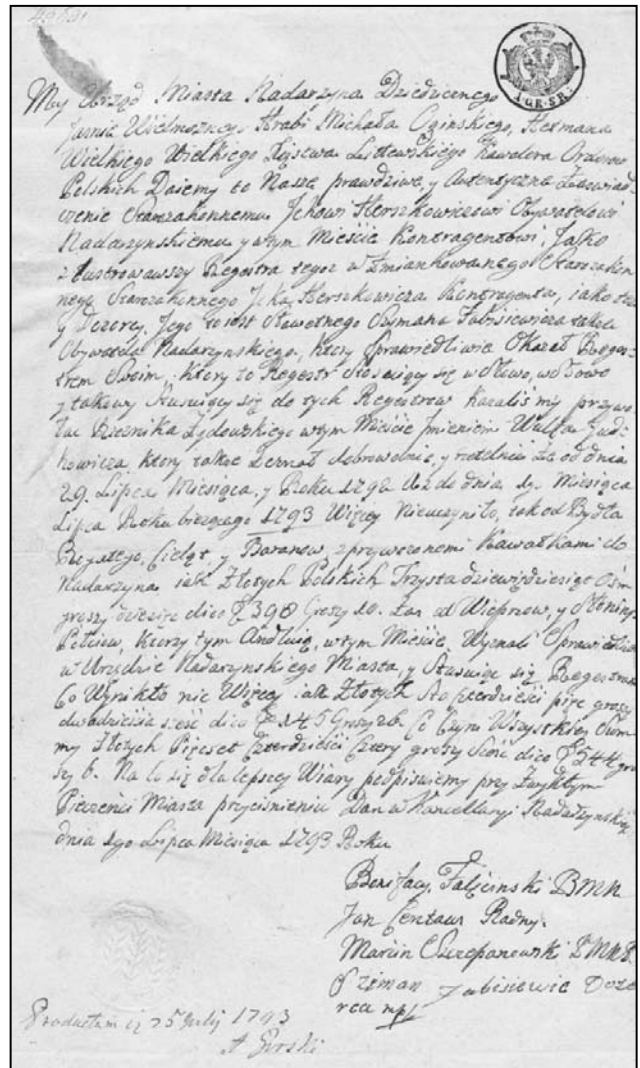 My Urząd Miasta Nadarzyna Dziedzicznego
Jaśnie Wielmożnego Hrabi Michała Oginskiego, Hetmana
Wielkiego Wielkiego Xięstwa Littewskiego Kawalera Orderow
Polskich Daiemy to Nasze prawdziwe, y Autentyczne Zaswiad
czenie Starozakonnemu Jckowi Herszkowiczowi Obywatelowi
Nadarzynskiemu y wtym Mieście Kontragentowi, Jako
zlustrowawszy Regestra tegoż wzmiankowanego Starozakon
nego Starozakonnego Jcka Herszkowicza Kontragenta, iako też
y Dozorcy Jego to iest Sławetnego Szymana Fabisiewicza także
Obywatela Nadarzynskiego, ktory Sprawiedliwie Okazał Reges
trem Swoim, Ktory to Regestr Stosuiący się w Słowo, w Słowo
y takowy Stusuiący się do tych Regestrow Kazaliśmy przywo
łac Rzeznika Żydowskiego wtym Mieście Jmieniem Wulfa Jud
kowicza, ktory także Zeznał dobrowolnie, y rzetelnie że od dnia
29. Lipca Miesiąca, y Roku 1792 aż do dnia 1g. Miesiąca
Lipca Roku bieżącego 1793 Więcy Nieuczyniło, iak od Bydła
Rogatego, Cieląt, y Baranow, z przywozonemi Kawałkami do
Nadarzyna iak Złotych Polskich Trzysta dziewięдziesiąt Ośm
groszy dziesięć dico 398 Groszy 10. Zas od Wieprzow, y Słoniny
Połciow, Ktorzy tym Andluią, wtym Mieście, Wyznali Sprawiedliwie
w Urzędzie Nadarzynskiego Miasta, y Stusuiąc się Regestrom
Co Wynikło nic Więcy iak Złotych Sto czterdzieści pięc groszy
dwadzieścia sześć dico 145 Groszy 26. Co Czyni Wszystkiey Sum
my Złotych Pięcset Czterdzieści Cztery groszy sześć dico 544 gro
szy 6. Na to się dla lepszey Wiary podpisuiemy przy Zwykłym
Pieczenci Miasta przycisnieniu Dan w Kancellaryi Nadarzynskiey
dnia 1go Lipca Miesiąca 1793 Roku
Bonifacy Falęcinski BMN
Jan Centaur Radny.
Marcin Szczepanowski
Szÿman Fabisiewic Dozo
rca mp
Productum 25 Julij 1793
A Gurski
1 GR: SR: